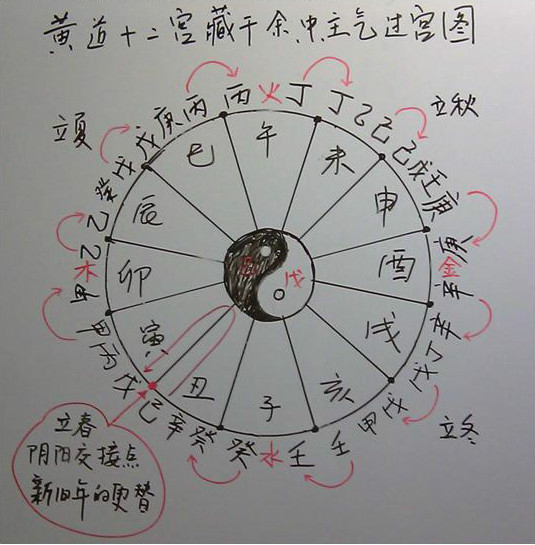 黄道十二宫藏干余中主气过宫图
立夏
立秋
立冬
立春
阴阳交接点
新旧年的更替
戊丙甲
甲木乙
乙癸戊
戊庚丙
丙火丁
丁乙己
己戊壬庚
庚金辛
辛丁戊
戊甲壬
壬水癸
癸辛己
寅
卯
辰
巳
午
未
申
酉
戌
亥
子
丑
己
戊